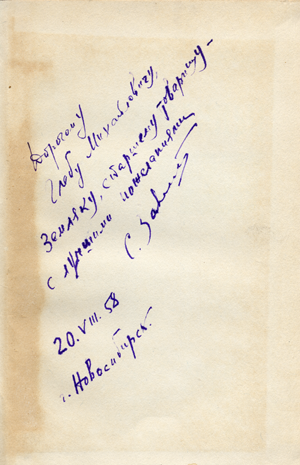 Дорогому
Глебу Михайловичу,
земляку, старшему товарищу –
с лучшими пожеланиями
С.
20. VIII. 58
г. Новосибирск.